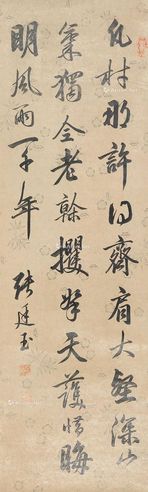 凡材那許得齊肩大壑深山
氣獨全老幹攫拏天護惜晦
明風雨一千年 張廷玉